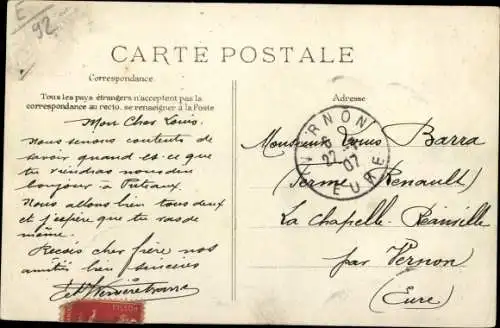 E
92
CARTE POSTALE
Correspondance.
Tous les pays étrangers n'acceptent pas la
correspondance au recto. se renseigner à la Poste
Mon Cher Louis
Nous serons contents de
savoir quand est-ce que
tu viendras nous dire
bonjour à Puteaux
Nous allons bien tous deux
et j'espère que tu vas de
même.
Reçois cher frère nos
amitiés bien sincères
Adresse
VERNON
22
07
EURE
Monsieur Louis Barra
(Ferme Renault)
La Chapelle-Réanville
par Vernon
(Eure)